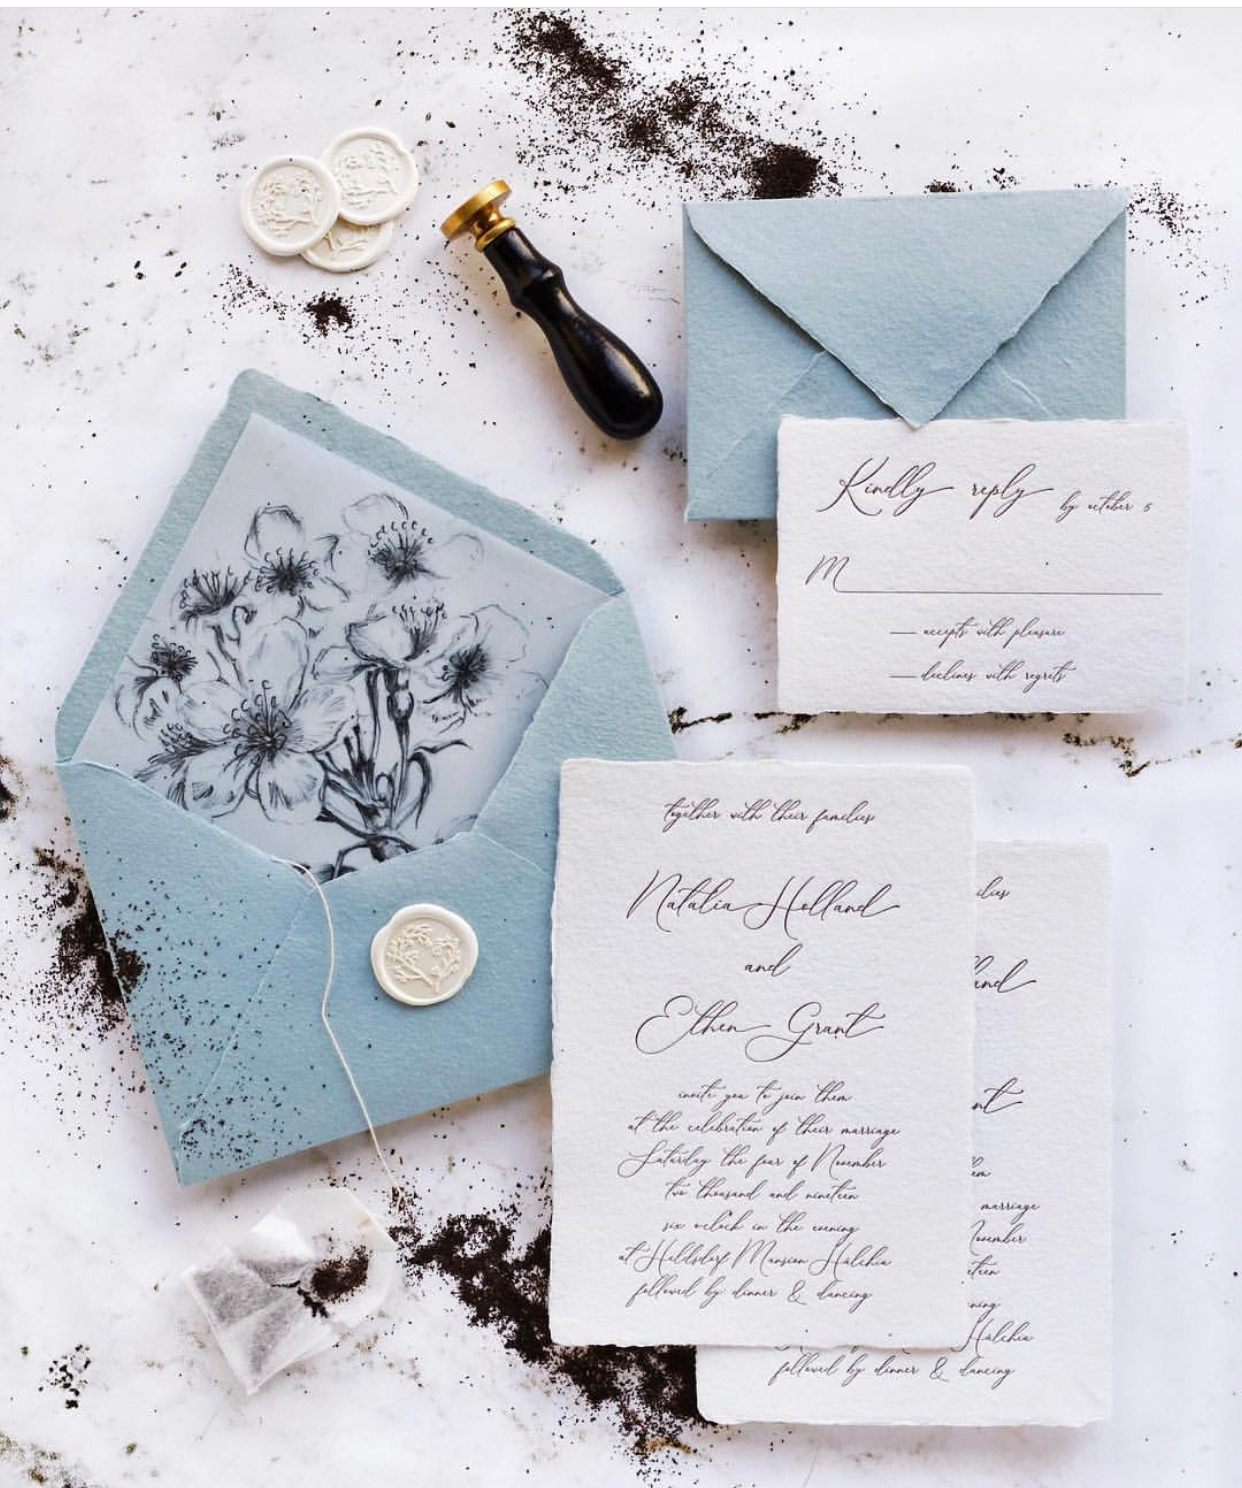 Kindly reply by october 5
M
accepts with pleasure
declines with regrets
together with their families
Natalia Holland
and
Ethen Grant
invite you to join them
at the celebration of their marriage
Saturday the four of November
two thousand and nineteen
six o'clock in the evening
at Mansion
followed by dinner & dancing
ilies
and
nt
em
marriage
November
eteen
ning
followed by dinner & dancing